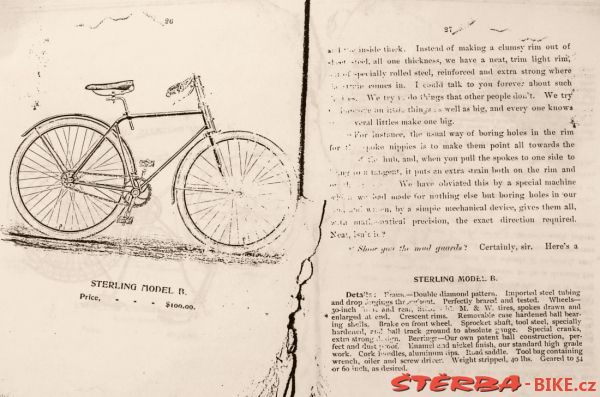 26
STERLING MODEL B.
Price, - - - $100.00.
27
and the inside thick. Instead of making a clumsy rim out of
sheet steel, all one thickness, we have a neat, trim light rim,
of specially rolled steel, reinforced and extra strong where
comes in. I could talk to you forever about such
We try to do things that other people don't. We try
little things as well as big, and every one knows
several littles make one big.
For instance, the usual way of boring holes in the rim
for the spoke nipples is to make them point all towards the
of the hub, and, when you pull the spokes to one side to
a tangent, it puts an extra strain both on the rim and
We have obviated this by a special machine
had made for nothing else but boring holes in our
by a simple mechanical device, gives them all,
mathematical precision, the exact direction required.
Neat, isn't it?
Show you the mud guards? Certainly, sir. Here's a
STERLING MODEL B.
Details: Frame—Double diamond pattern. Imported steel tubing
and drop forgings throughout. Perfectly brazed and tested. Wheels—
30-inch and rear, M. & W. tires, spokes drawn and
enlarged at end. Crescent rims. Removable case hardened ball bear-
ing shells. Brake on front wheel. Sprocket shaft, tool steel, specially
hardened, and ball track ground to absolute gauge. Special cranks,
extra strong design. Bearings—Our own patent ball construction, per-
fect and dust proof. Enamel and nickel finish, our standard high grade
work. Cork handles, aluminum tips. Road saddle. Tool bag containing
wrench, oiler and screw driver. Weight stripped, 40 lbs. Geared to 54
or 60 inch, as desired.
ŠTĚRBA-BIKE.cz